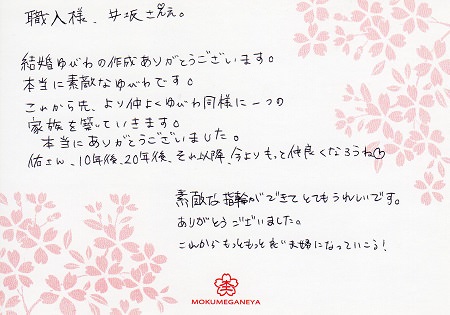 職人様、井坂さん。
結婚ゆびわの作成ありがとうございます。
本当に素敵なゆびわです。
これから先、より仲よくゆびわ同様に一つの
家族を築っていきます。
本当にありがとうございました。
佑さん、10年後、20年後、それ以降、今よりもっと仲良くなろうね♡
素敵な指輪ができてとてもうれしいです。
ありがとうございました。
これからもっともっと良い夫婦になっていこう!
MOKUMEGANEYA